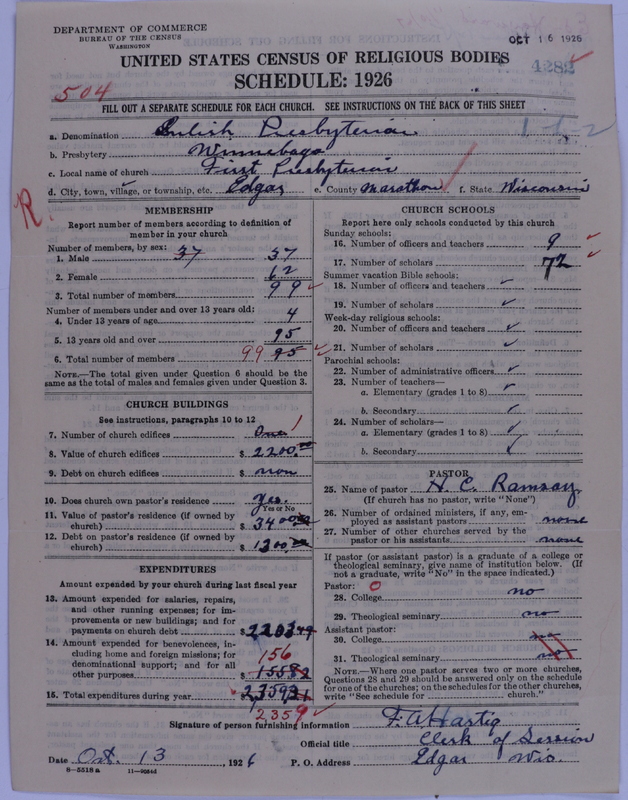 DEPARTMENT OF COMMERCE
BUREAU OF THE CENSUS
WASHINGTON
OCT 16 1926
4282
UNITED STATES CENSUS OF RELIGIOUS BODIES
SCHEDULE: 1926
504
FILL OUT A SEPARATE SCHEDULE FOR EACH CHURCH. SEE INSTRUCTIONS ON THE BACK OF THIS SHEET
a. Denomination Presbyterian
1-6-2
b. Presbytery Winnebago
c. Local name of church First Presbyterian
d. City, town, village, or township, etc. Edgar e. County Marathon f. State Wisconsin
R.
MEMBERSHIP
Report number of members according to definition of
member in your church
Number of members, by sex:
1. Male 37 37
2. Female 62
3. Total number of members 99
Number of members under and over 13 years old:
4. Under 13 years of age 4
5. 13 years old and over 95
6. Total number of members 99 95
NOTE.—The total given under Question 6 should be
the same as the total of males and females given under Question 3.
CHURCH BUILDINGS
See instructions, paragraphs 10 to 12
7. Number of church edifices One 1
8. Value of church edifices $ 2200.00
9. Debt on church edifices $ non
10. Does church own pastor's residence Yes.
Yes or No
11. Value of pastor's residence (if owned by
church) $ 3400.00
12. Debt on pastor's residence (if owned by
church) $ 1300.00
EXPENDITURES
Amount expended by your church during last fiscal year
13. Amount expended for salaries, repairs,
and other running expenses; for im-
provements or new buildings; and for
payments on church debt $ 2203 49
14. Amount expended for benevolences, in-
cluding home and foreign missions; for
denominational support; and for all
other purposes $ 155 82
156
15. Total expenditures during year $ 2359 31
2359
CHURCH SCHOOLS
Report here only schools conducted by this church
Sunday schools:
16. Number of officers and teachers 9
17. Number of scholars 72
Summer vacation Bible schools:
18. Number of officers and teachers
19. Number of scholars
Week-day religious schools:
20. Number of officers and teachers
21. Number of scholars
Parochial schools:
22. Number of administrative officers
23. Number of teachers—
a. Elementary (grades 1 to 8)
b. Secondary
24. Number of scholars—
a. Elementary (grades 1 to 8)
b. Secondary
PASTOR
25. Name of pastor H. C. Ramsay
(If church has no pastor, write "None")
26. Number of ordained ministers, if any, em-
ployed as assistant pastors none
27. Number of other churches served by the
pastor or his assistants none
If pastor (or assistant pastor) is a graduate of a college or
theological seminary, give name of institution below. (If
not a graduate, write "No" in the space indicated.)
Pastor: O
28. College no
29. Theological seminary no
Assistant pastor:
30. College no
31. Theological seminary no
NOTE.—Where one pastor serves two or more churches,
Questions 28 and 29 should be answered only on the schedule
for one of the churches; on the schedules for the other churches,
write "See schedule for church."
Signature of person furnishing information F. A. Hartig
Official title Clerk of Session
Date Oct. 13, 1926 P. O. Address Edgar Wis.
8—5518 a 11—9054d